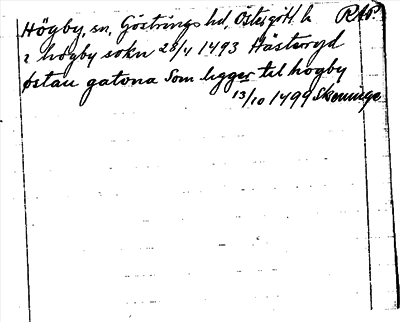 Högby, sn, Göstrings hd, Östergötl. l. RAP.
i högby sokn 28/4 1493 Hästaryd
østan gatona som ligger til høgby
13/10 1499 Skeninge